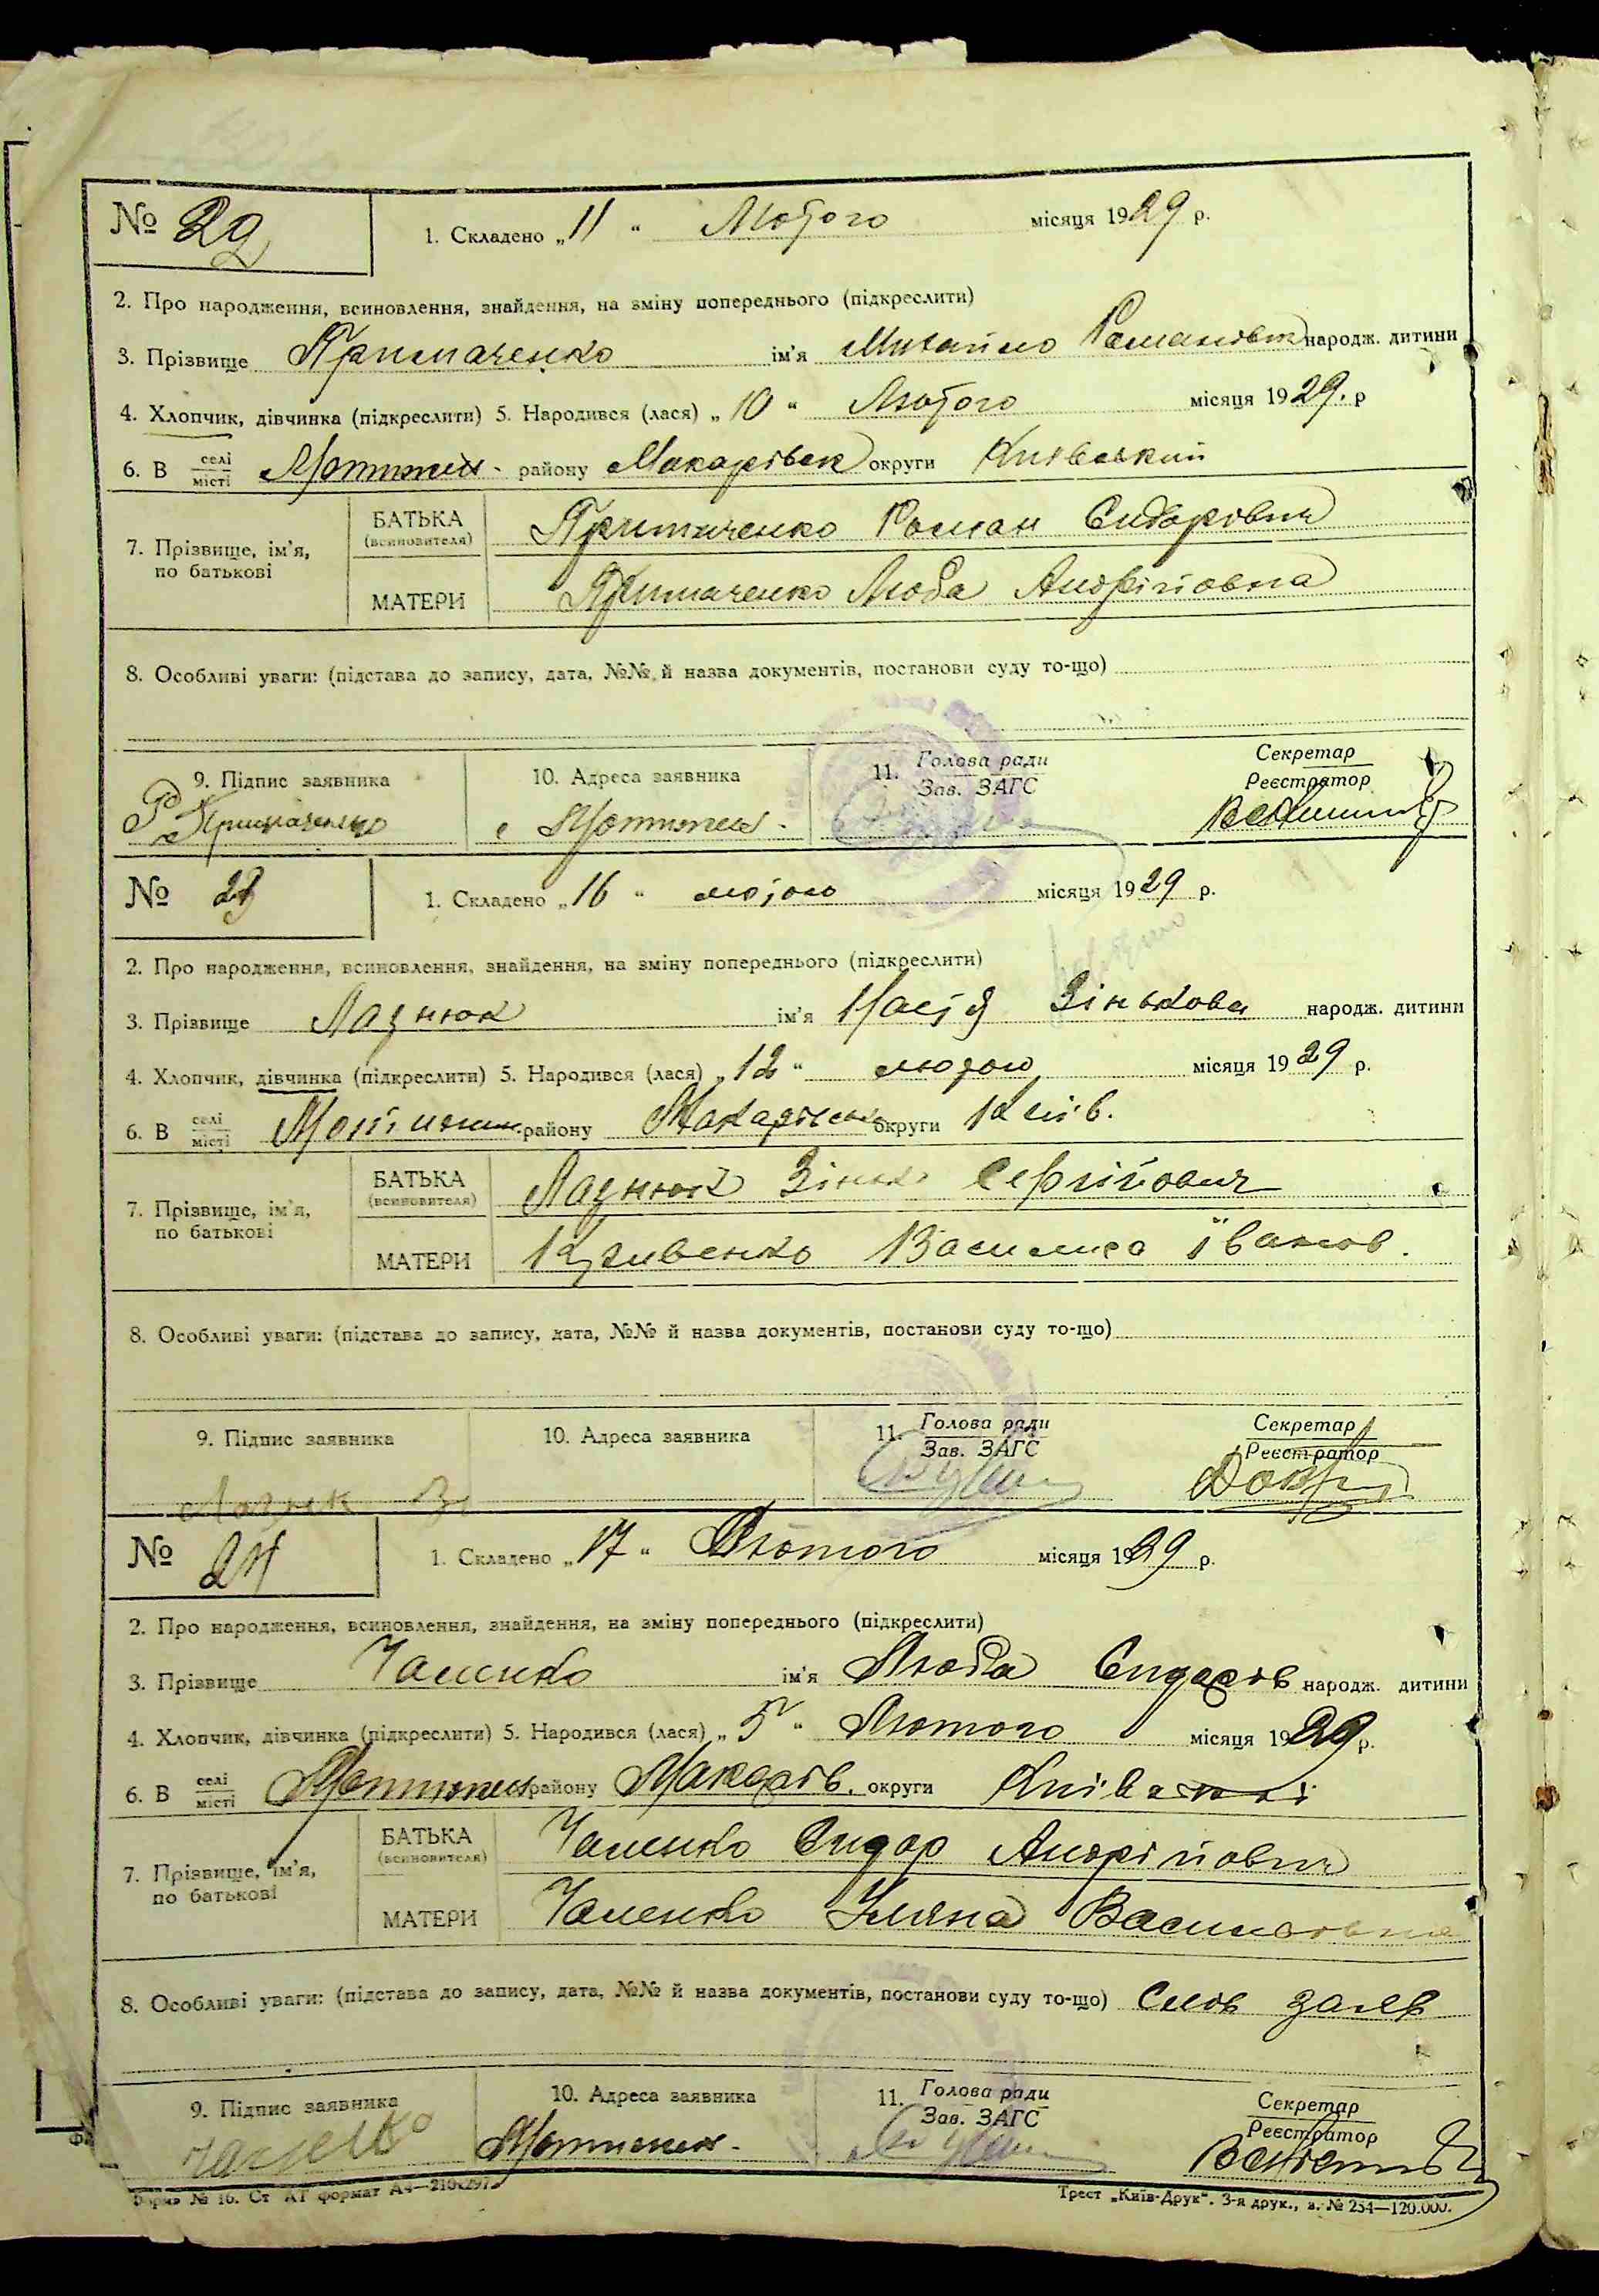 № 22 1. Складено „ 11 “ Лютого місяця 1929 р.
2. Про народження, всиновлення, знайдення, на зміну попереднього (підкреслити)
3. Прізвище Примаченко ім'я Михайло Романович народж. дитини
4. Хлопчик, дівчинка (підкреслити) 5. Народився (лася) „ 10 “ Лютого місяця 1929. р
6. В селі/місті Мотижин району Макарівськ округи Київський
7. Прізвище, ім'я, по батькові
БАТЬКА (всиновителя) Примаченко Роман Сидорович
МАТЕРИ Примаченко Люба Андрійовна
8. Особливі уваги: (підстава до запису, дата, №№ й назва документів, постанови суду то-що)
9. Підпис заявника 10. Адреса заявника 11. Голова ради Секретар
Зав. ЗАГС Реєстратор
Р Примаченко с Мотижин
№ 23 1. Складено „ 16 “ лютого місяця 1929 р.
2. Про народження, всиновлення, знайдення, на зміну попереднього (підкреслити)
3. Прізвище Лазнюк ім'я Настя Зінькова народж. дитини
4. Хлопчик, дівчинка (підкреслити) 5. Народився (лася) „ 12 “ лютого місяця 1929 р.
6. В селі/місті Мотижин району Макарівськ округи Київ.
7. Прізвище, ім'я, по батькові
БАТЬКА (всиновителя) Лазнюк Зінько
МАТЕРИ Кривенко Василиса Іванов.
8. Особливі уваги: (підстава до запису, дата, №№ й назва документів, постанови суду то-що)
9. Підпис заявника 10. Адреса заявника 11. Голова ради Секретар
Зав. ЗАГС Реєстратор
Лазнюк З
№ 24 1. Складено „ 17 “ Лютого місяця 1929 р.
2. Про народження, всиновлення, знайдення, на зміну попереднього (підкреслити)
3. Прізвище Чаленко ім'я Люба Сидорів народж. дитини
4. Хлопчик, дівчинка (підкреслити) 5. Народився (лася) „ 5 “ Лютого місяця 1929 р.
6. В селі/місті Мотижин району Макарів. округи Київські
7. Прізвище, ім'я, по батькові
БАТЬКА (всиновителя) Чаленко Сидор Андрійович
МАТЕРИ Чаленко Уляна Василівна
8. Особливі уваги: (підстава до запису, дата, №№ й назва документів, постанови суду то-що) Слов заяв
9. Підпис заявника 10. Адреса заявника 11. Голова ради Секретар
Зав. ЗАГС Реєстратор
Чаленко Мотижин.
Форма № 16. Ст АТ формат А4—210х297 Трест „Київ-Друк“. 3-я друк., з. № 254—120.000.